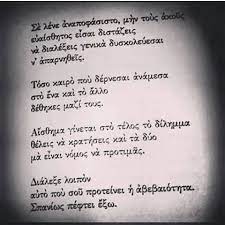 Σὲ λένε ἀναποφάσιστο, μὴν τοὺς ἀκοῦς
εὐαίσθητος εἶσαι διστάζεις
νὰ διαλέξεις γενικὰ δυσκολεύεσαι
ν' ἀπαρνηθεῖς.
Τόσο καιρὸ ποὺ δέρνεσαι ἀνάμεσα
στὸ ἕνα καὶ τὸ ἄλλο
δέθηκες μαζί τους.
Αἴσθημα γίνεται στὸ τέλος τὸ δίλημμα
θέλεις νὰ κρατήσεις καὶ τὰ δύο
μὰ εἶναι νόμος νὰ προτιμᾶς.
Διάλεξε λοιπὸν
αὐτὸ ποὺ σοῦ προτείνει ἡ ἀβεβαιότητα.
Σπανίως πέφτει ἔξω.